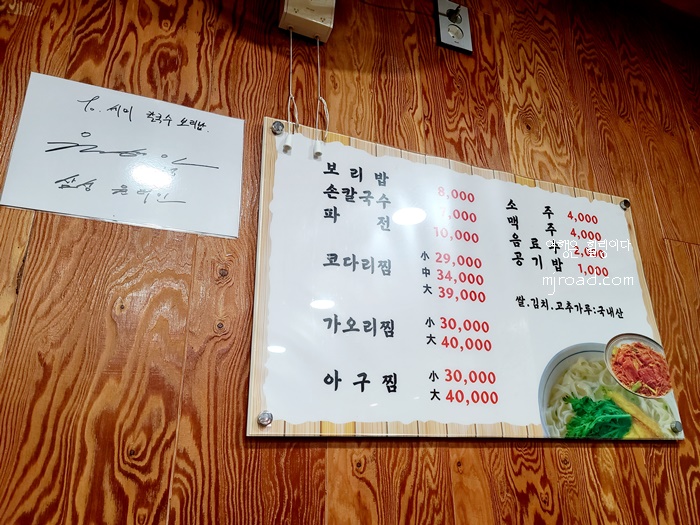 To. 씨이 칼국수 보리밥.
삼성
보리밥 8,000
손칼국수 7,000
파전 10,000
코다리찜 小 29,000
中 34,000
大 39,000
가오리찜 小 30,000
大 40,000
아구찜 小 30,000
大 40,000
소주 4,000
맥주 4,000
음료수 2,000
공기밥 1,000
쌀.김치.고추가루:국내산
여행은 힐링이다
mjroad.com